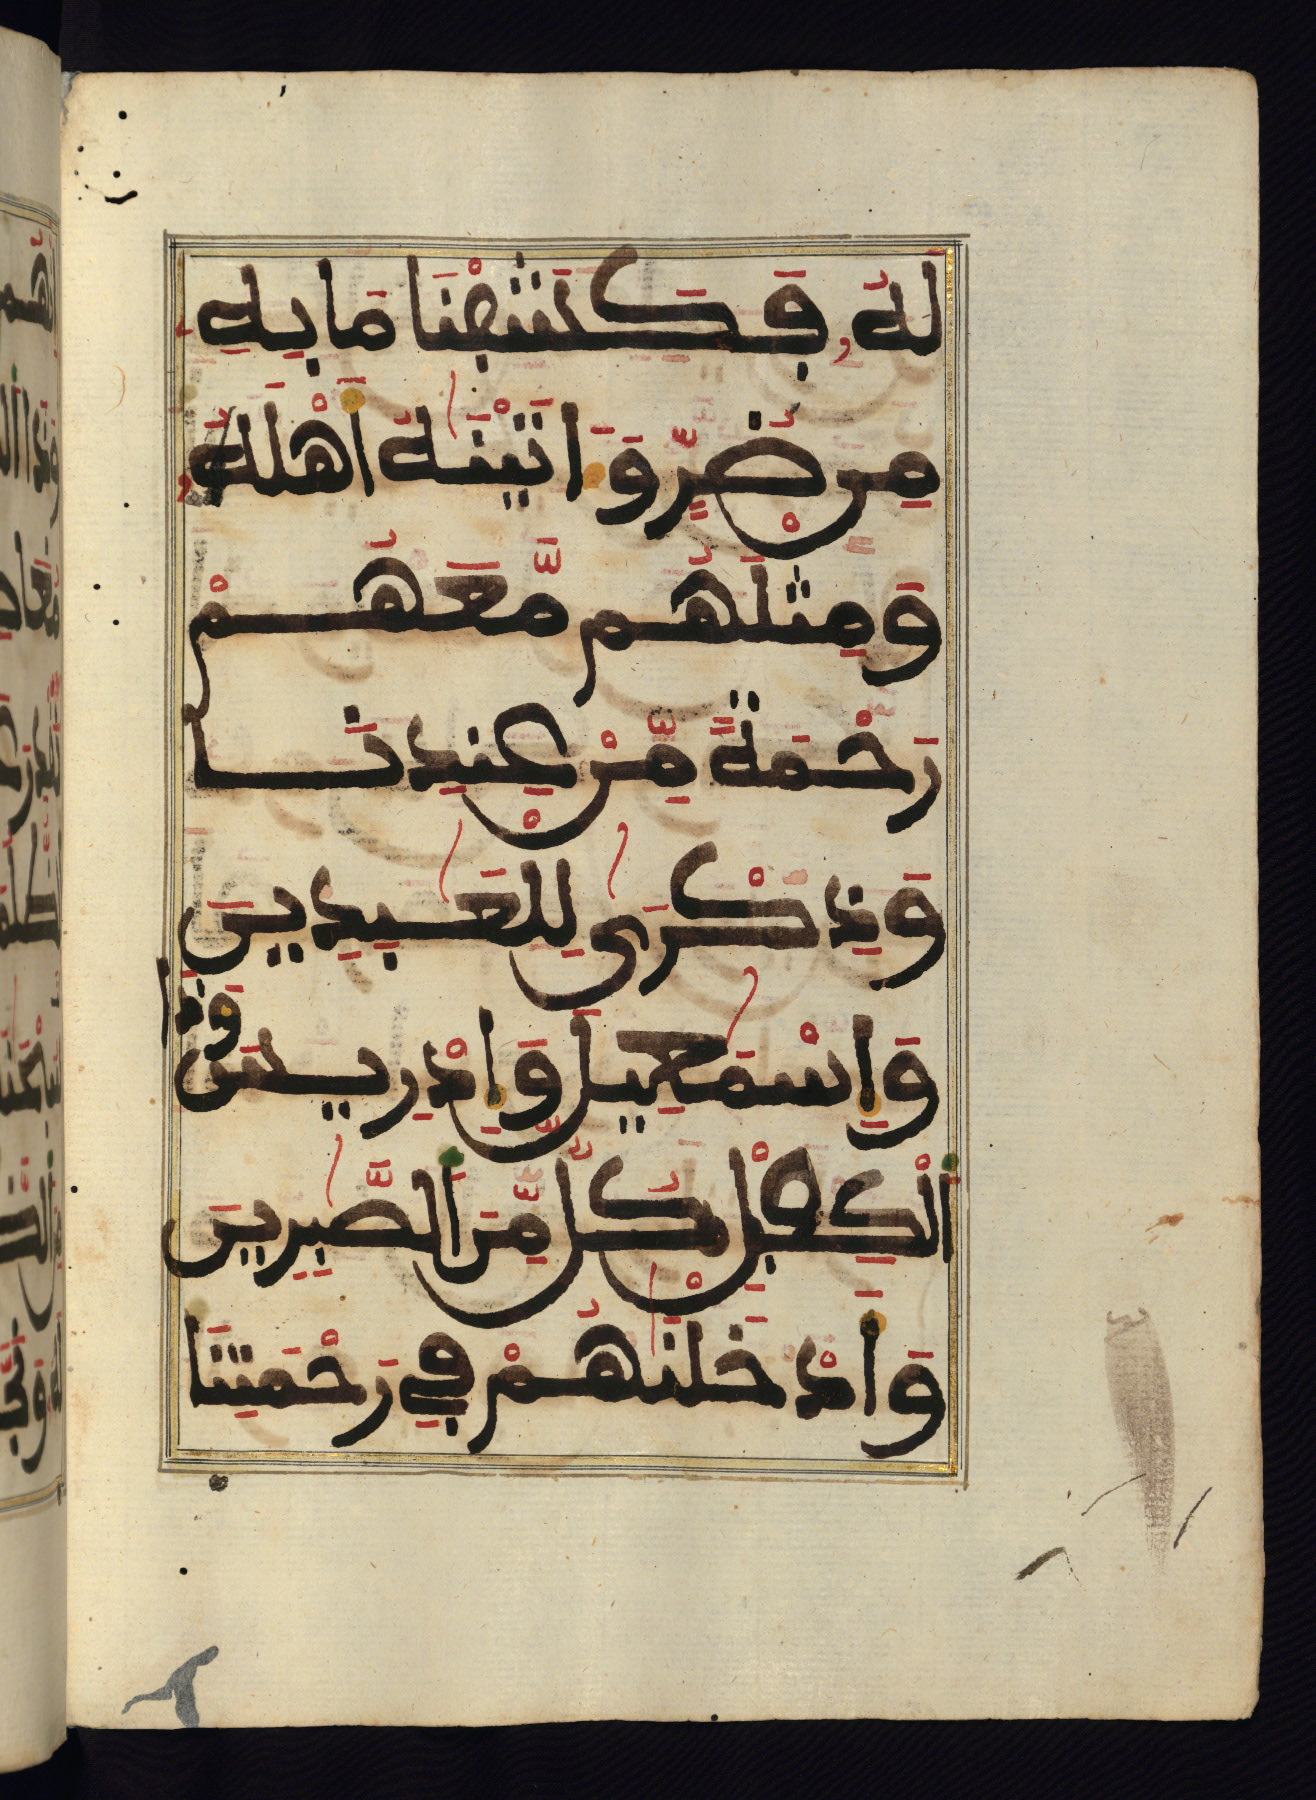 لَهُۥ فَكَشَفْنَا مَا بِهِۦ
مِن ضُرٍّ وَءَاتَيْنَٰهُ أَهْلَهُۥ
وَمِثْلَهُم مَّعَهُمْ
رَحْمَةً مِّنْ عِندِنَا
وَذِكْرَىٰ لِلْعَٰبِدِينَ
وَإِسْمَٰعِيلَ وَإِدْرِيسَ وَذَا
اَلْكِفْلِ كُلٌّ مِّنَ اَلصَّٰبِرِينَ
وَأَدْخَلْنَٰهُمْ فِي رَحْمَتِنَا